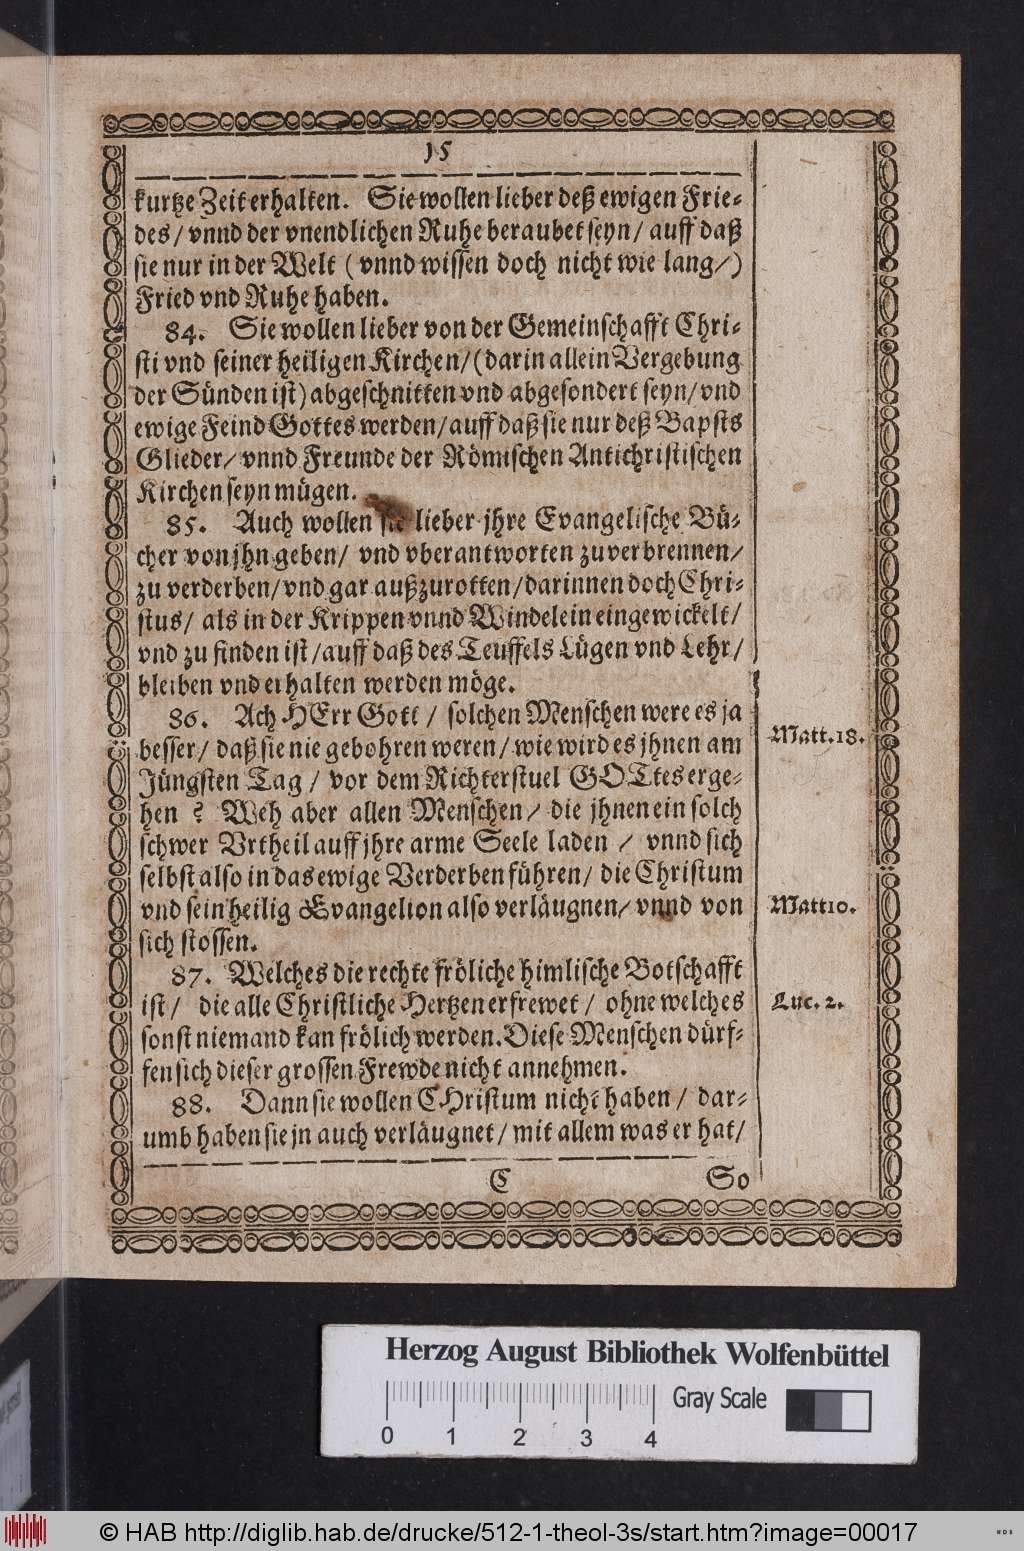 15
kurtze Zeit erhalten. Sie wollen lieber deß ewigen Frie-
des/ vnnd der vnendlichen Ruhe beraubet seyn/ auff daß
sie nur in der Welt (vnnd wissen doch nicht wie lang/)
Fried vnd Ruhe haben.
84. Sie wollen lieber von der Gemeinschafft Chri-
sti vnd seiner heiligen Kirchen/ (darin allein Vergebung
der Sünden ist) abgeschnitten vnd abgesondert seyn/ vnd
ewige Feind Gottes werden/ auff daß sie nur deß Bapsts
Glieder/ vnnd Freunde der Römischen Antichristischen
Kirchen seyn mügen.
85. Auch wollen sie lieber jhre Evangelische Bü-
cher von jhn geben/ vnd vberantworten zu verbrennen/
zu verderben/ vnd gar außzurotten/ darinnen doch Chri-
stus/ als in der Krippen vnnd Windelein eingewickelt/
vnd zu finden ist/ auff daß des Teuffels Lügen vnd Lehr/
bleiben vnd erhalten werden möge.
86. Ach HErr Gott/ solchen Menschen were es ja
besser/ daß sie nie gebohren weren/ wie wird es jhnen am
Jüngsten Tag/ vor dem Richterstuel GOttes erge-
hen? Weh aber allen Menschen/ die jhnen ein solch
schwer Vrtheil auff jhre arme Seele laden/ vnnd sich
selbst also in das ewige Verderben führen/ die Christum
vnd sein heilig Evangelion also verläugnen/ vnnd von
sich stossen.
87. Welches die rechte fröliche himlische Botschafft
ist/ die alle Christliche Hertzen erfrewet/ ohne welches
sonst niemand kan frölich werden. Diese Menschen dürf-
fen sich dieser grossen Frewde nicht annehmen.
88. Dann sie wollen CHristum nicht haben/ dar-
umb haben sie jn auch verläugnet/ mit allem was er hat/
C So
Matt.18.
Matt10.
Luc. 2.
Herzog August Bibliothek Wolfenbüttel
Gray Scale
0 1 2 3 4
© HAB http://diglib.hab.de/drucke/512-1-theol-3s/start.htm?image=00017